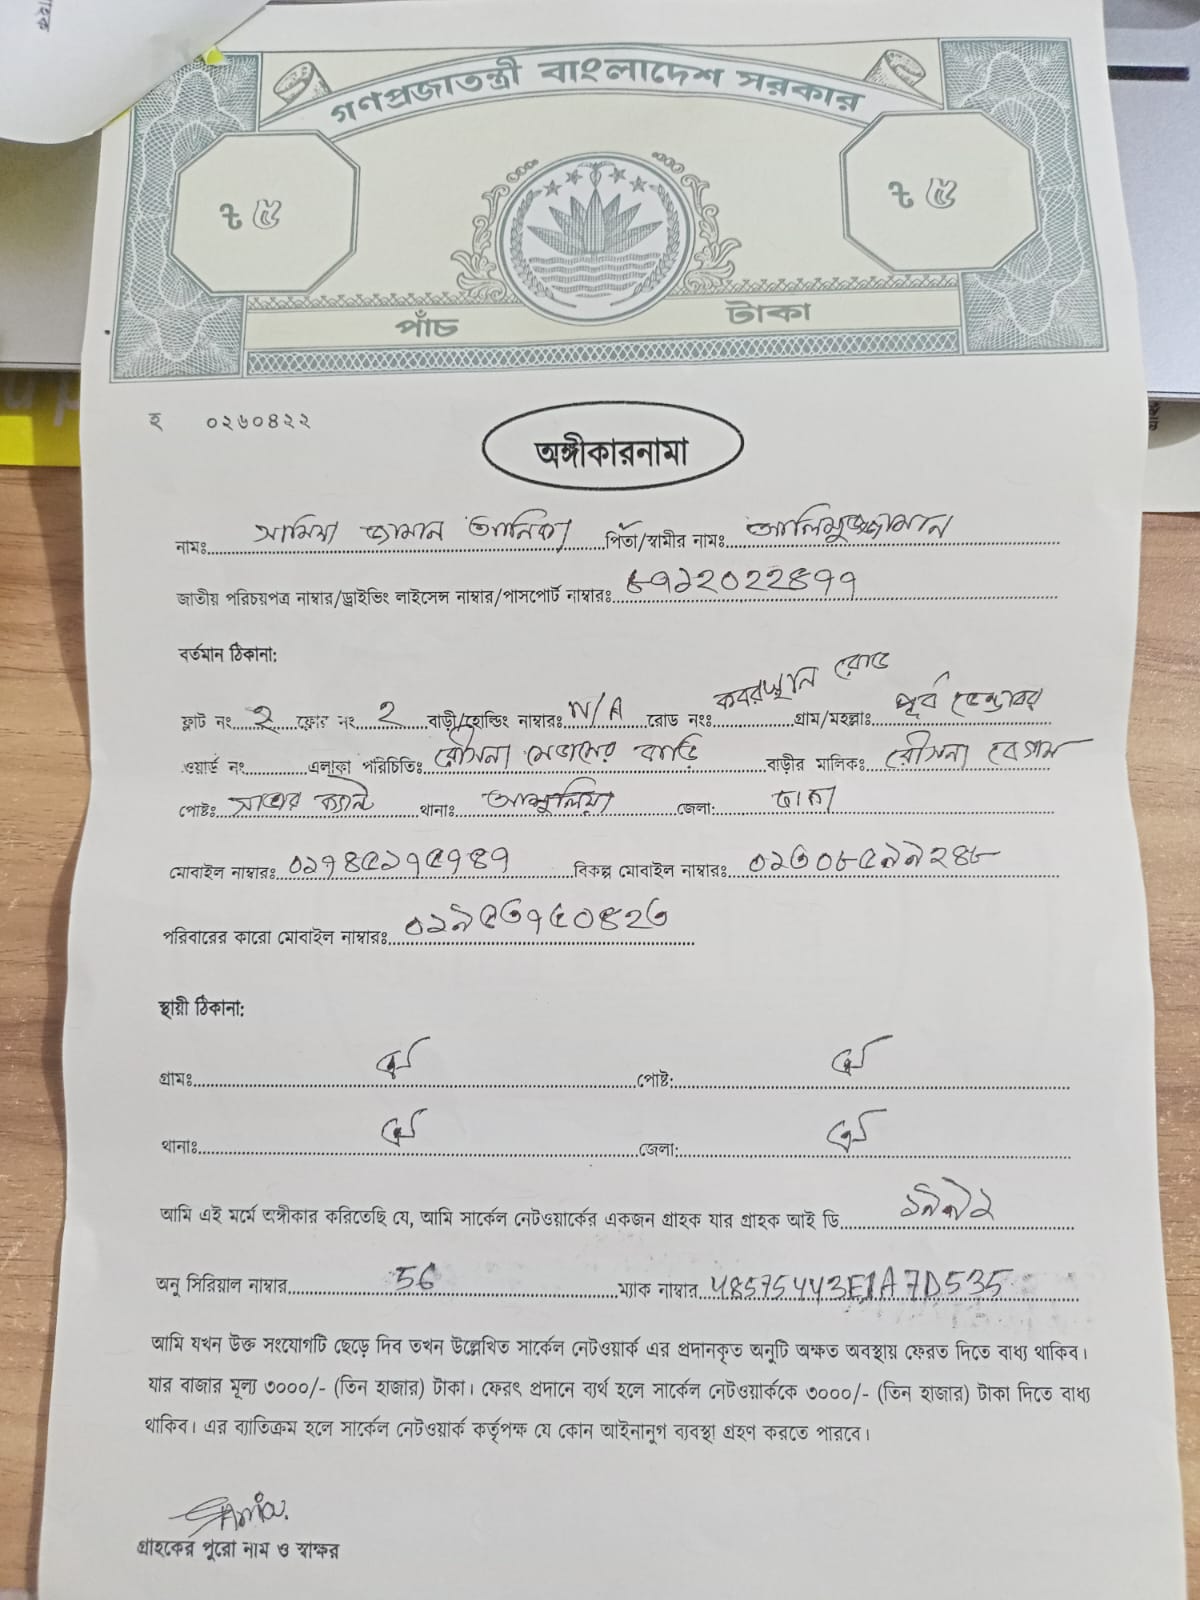 গণপ্রজাতন্ত্রী বাংলাদেশ সরকার
ট ৫ ট ৫
পাঁচ টাকা
হ ০২৬০৪২২
অঙ্গীকারনামা
নামঃ সামিয়া জামান আনিকা পিতা/স্বামীর নামঃ আলিমুজ্জামান
জাতীয় পরিচয়পত্র নাম্বার/ড্রাইভিং লাইসেন্স নাম্বার/পাসপোর্ট নাম্বারঃ ৮৭১২০২২৪৭৭
বর্তমান ঠিকানা:
ফ্লাট নং 2 ফ্লোর নং 2 বাড়ী/হোল্ডিং নাম্বারঃ N/A রোড নংঃ কবরস্থান রোড গ্রাম/মহল্লাঃ পূর্ব ডেন্ডাবর
ওয়ার্ড নং এলাকা পরিচিতিঃ রৌসনা মেডামের বাড়ি বাড়ীর মালিকঃ রৌসনা বেগম
পোষ্টঃ সাভার ক্যান্ট থানাঃ আশুলিয়া জেলা: ঢাকা
মোবাইল নাম্বারঃ ০১৭৪৫১৭৫৭৪৭ বিকল্প মোবাইল নাম্বারঃ ০১৩০৮৫৯৯২৪৮
পরিবারের কারো মোবাইল নাম্বারঃ ০১৯৫৩৭৫০৪২৩
স্থায়ী ঠিকানা:
গ্রামঃ পোষ্ট:
থানাঃ জেলা:
আমি এই মর্মে অঙ্গীকার করিতেছি যে, আমি সার্কেল নেটওয়ার্কের একজন গ্রাহক যার গ্রাহক আই ডি
অনু সিরিয়াল নাম্বার 56 ম্যাক নাম্বার 48575443E1A7D535
আমি যখন উক্ত সংযোগটি ছেড়ে দিব তখন উল্লেখিত সার্কেল নেটওয়ার্ক এর প্রদানকৃত অনুটি অক্ষত অবস্থায় ফেরত দিতে বাধ্য থাকিব।
যার বাজার মূল্য ৩০০০/- (তিন হাজার) টাকা। ফেরৎ প্রদানে ব্যর্থ হলে সার্কেল নেটওয়ার্ককে ৩০০০/- (তিন হাজার) টাকা দিতে বাধ্য
থাকিব। এর ব্যাতিক্রম হলে সার্কেল নেটওয়ার্ক কর্তৃপক্ষ যে কোন আইনানুগ ব্যবস্থা গ্রহণ করতে পারবে।
Samia
গ্রাহকের পুরো নাম ও স্বাক্ষর